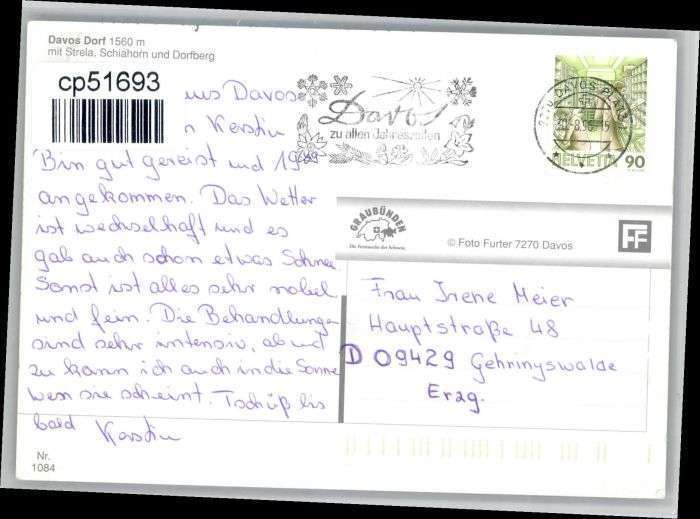 Davos Dorf 1560 m
mit Strela, Schiahorn und Dorfberg
cp51693
aus Davos
Kerstin
Bin gut gereist und
angekommen. Das Wetter
ist wechselhaft und es
gab auch schon etwas Schnee
Sonst ist alles sehr nobel
und fein. Die Behandlungen
sind sehr intensiv, ab und
zu kann ich auch in die Sonne
wen sie scheint. Tschüß bis
bald Kerstin
Nr.
1084
Davos
zu allen Jahreszeiten
7270 DAVOS PLATZ
HELVETIA 90
GRAUBÜNDEN
Die Ferienecke der Schweiz
© Foto Furter 7270 Davos
FF
Frau Irene Meier
Hauptstraße 48
D 09429 Gehringswalde
Erzg.